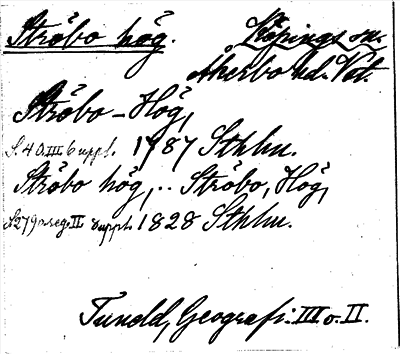 Ströbo hög. Köpings sn.
Åkerbo hd. Vstl.
Ströbo-Hög,
S. 40. III 6 uppl. 1787 Sthlm.
Ströbo hög, .. Ströbo, Hög,
S 279 o. reg. II 8 uppl. 1828 Sthlm.
Tuneld, Geografi. III o. II.